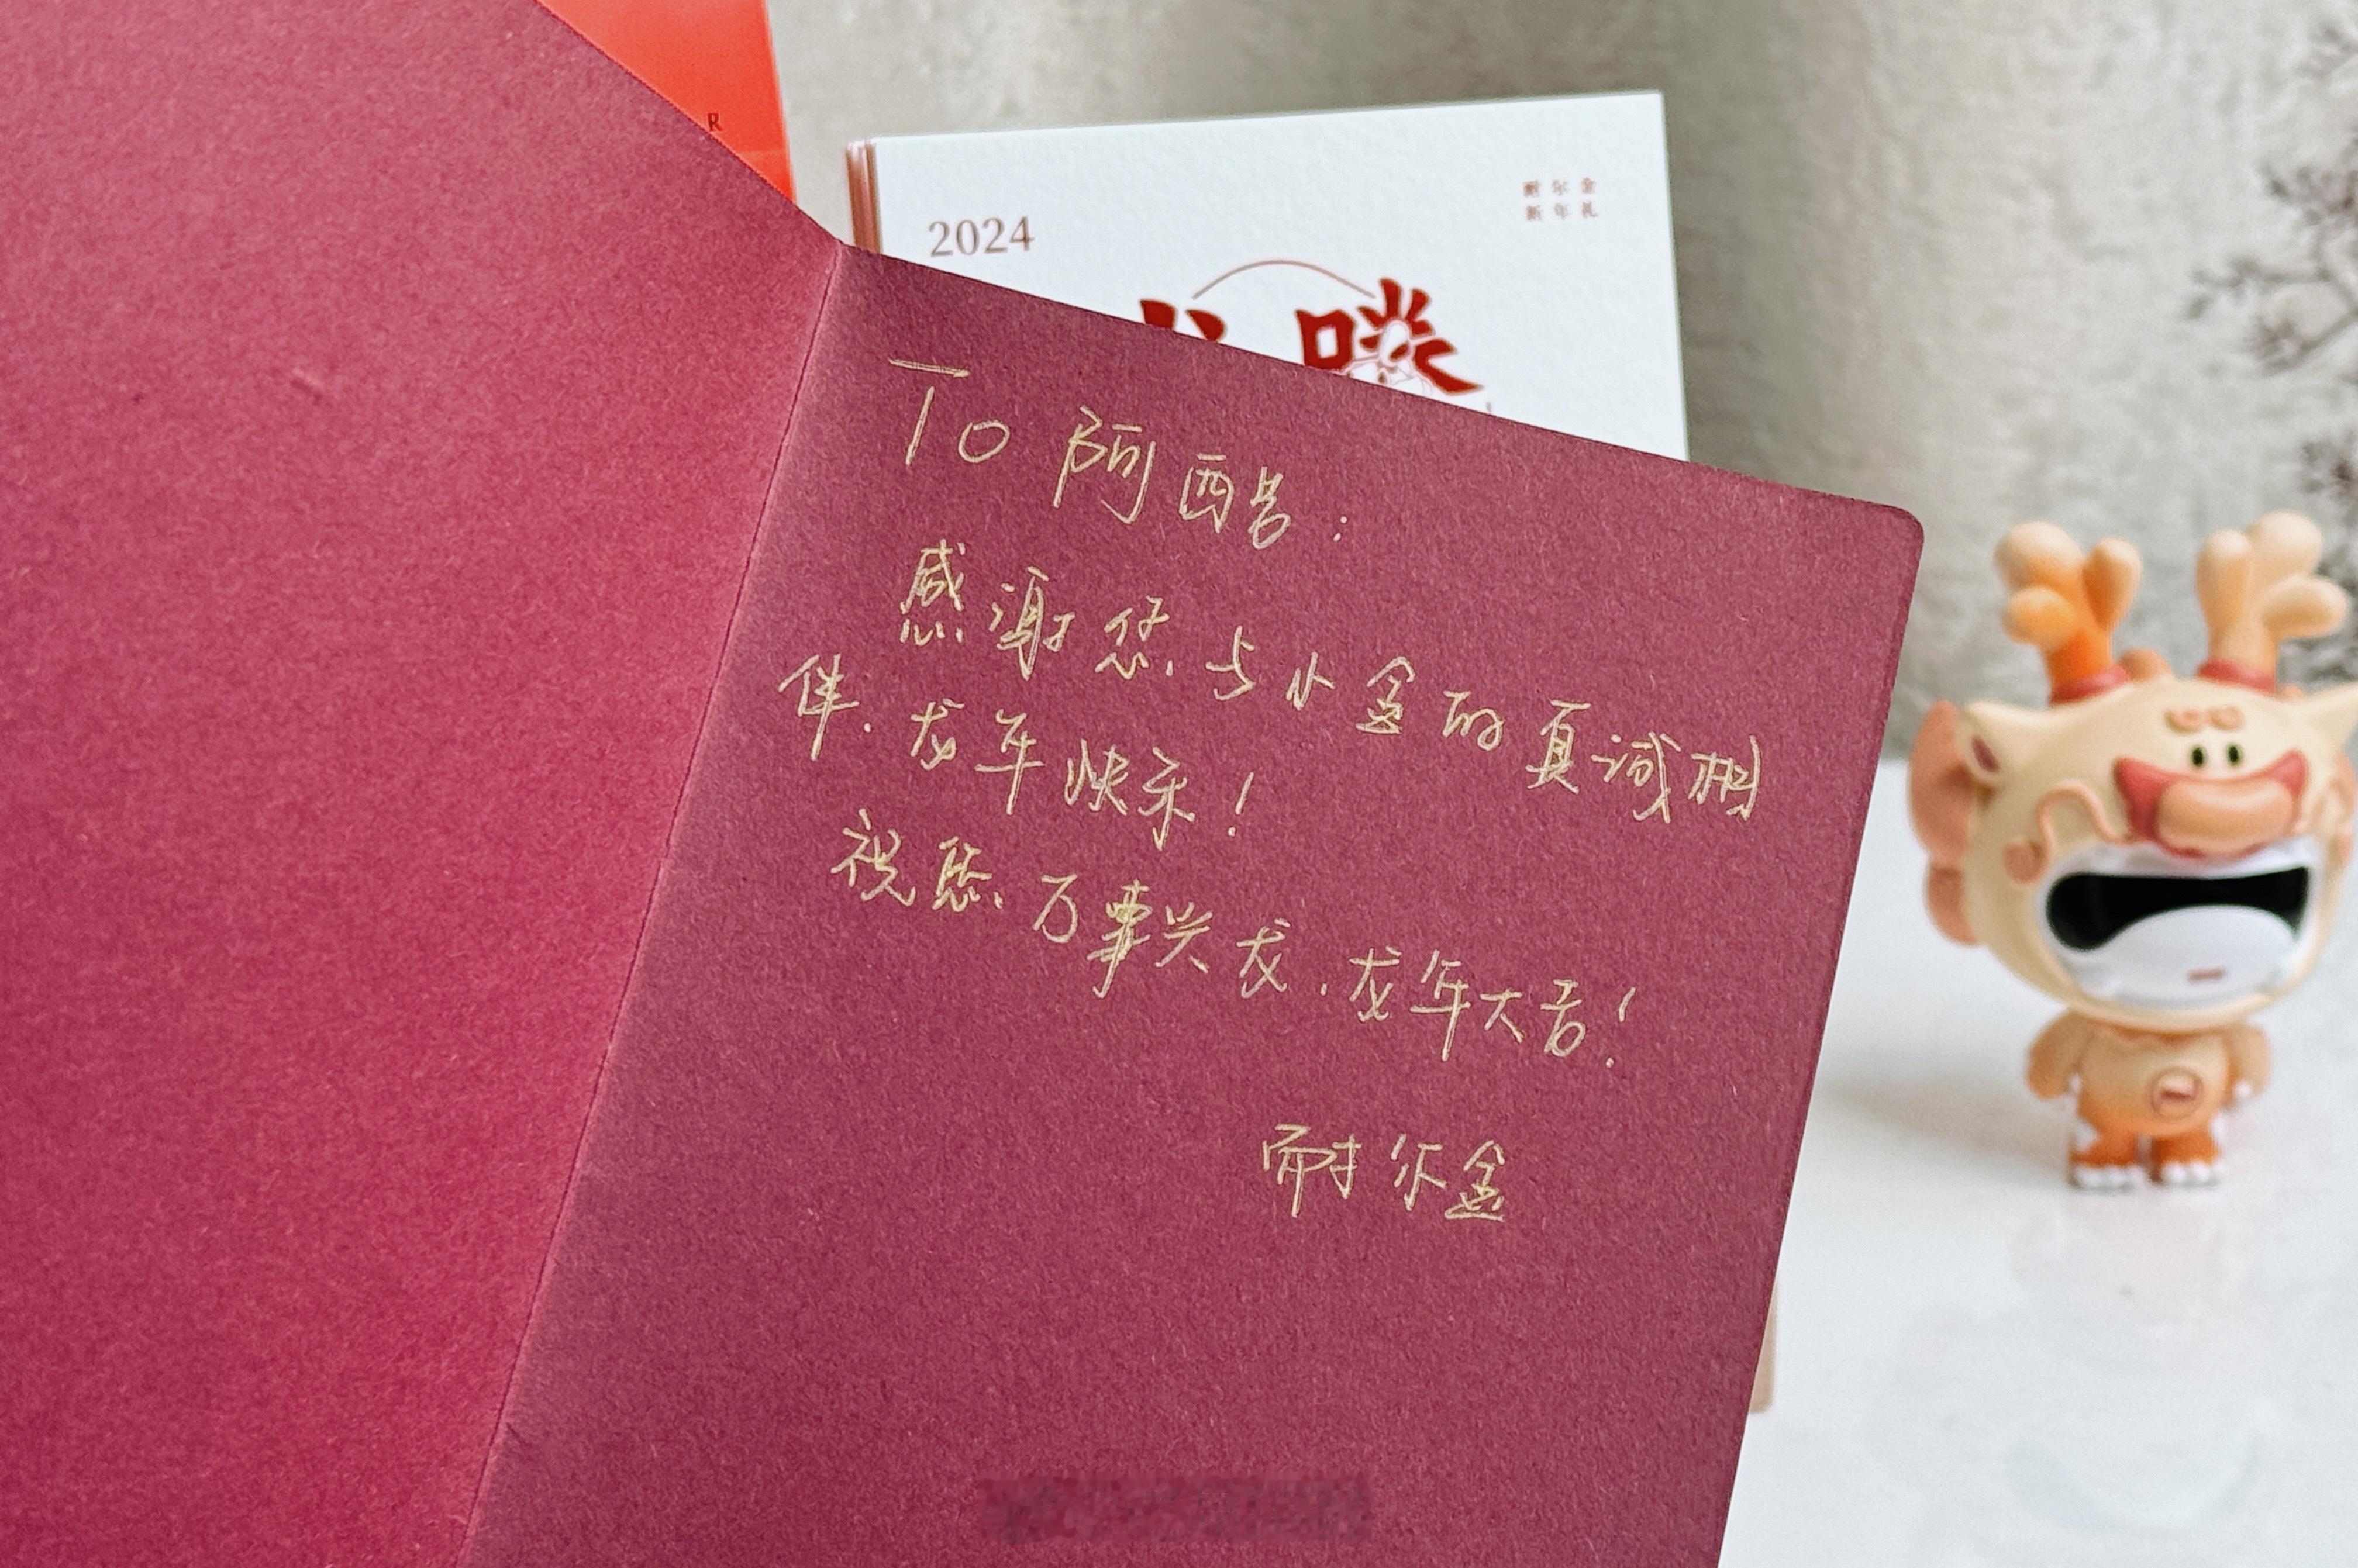 R
2024
耐尔金
新年礼
To 阿酷:
感谢您与小金的真诚相
伴.龙年快乐!
祝您万事兴龙.龙年大吉!
耐尔金